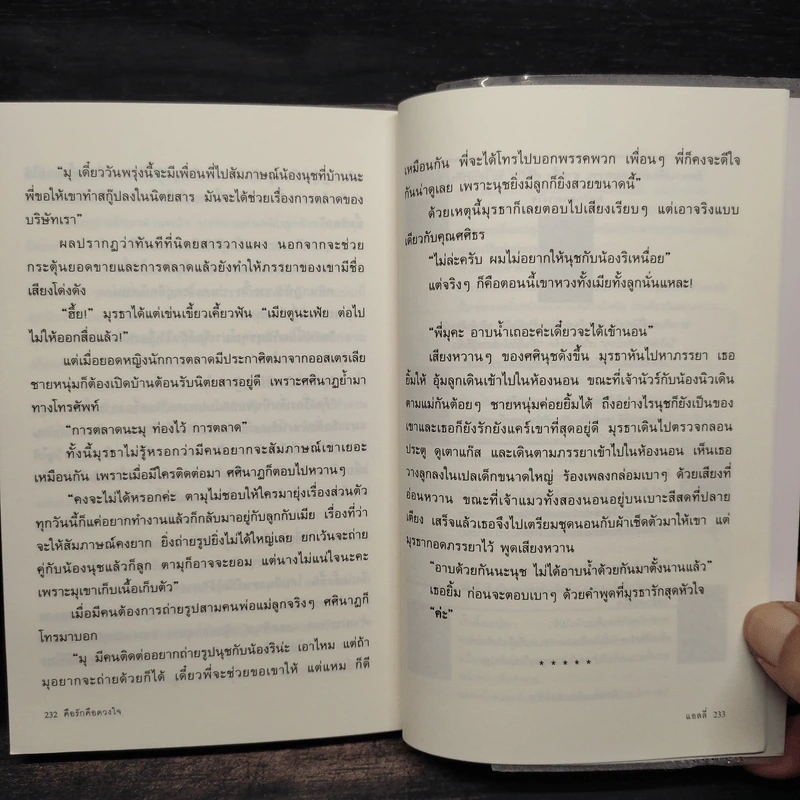 “มุ เดี๋ยววันพรุ่งนี้จะมีเพื่อนพี่ไปสัมภาษณ์น้องนุชที่บ้านนะ
พี่ขอให้เขาทำสกู๊ปลงในนิตยสาร มันจะได้ช่วยเรื่องการตลาดของ
บริษัทเรา”
ผลปรากฏว่าทันทีที่นิตยสารวางแผง นอกจากจะช่วย
กระตุ้นยอดขายและการตลาดแล้วยังทำให้ภรรยาของเขามีชื่อ
เสียงโด่งดัง
“ฮึ้ย!” มุรธาได้แต่เข่นเขี้ยวเคี้ยวฟัน “เมียตูนะเฟ้ย ต่อไป
ไม่ให้ออกสื่อแล้ว!”
แต่เมื่อยอดหญิงนักการตลาดมีประกาศิตมาจากออสเตรเลีย
ชายหนุ่มก็ต้องเปิดบ้านต้อนรับนิตยสารอยู่ดี เพราะศศินาฏย้ำมา
ทางโทรศัพท์
“การตลาดนะมุ ท่องไว้ การตลาด”
ทั้งนี้มุรธาไม่รู้หรอกว่ามีคนอยากจะสัมภาษณ์เขาเยอะ
เหมือนกัน เพราะเมื่อมีใครติดต่อมา ศศินาฏก็ตอบไปหวานๆ
“คงจะไม่ได้หรอกค่ะ ตามุไม่ชอบให้ใครมายุ่งเรื่องส่วนตัว
ทุกวันนี้ก็แค่อยากทำงานแล้วก็กลับมาอยู่กับลูกกับเมีย เรื่องที่ว่า
จะให้สัมภาษณ์คงยาก ยิ่งถ่ายรูปยิ่งไม่ได้ใหญ่เลย ยกเว้นจะถ่าย
คู่กับน้องนุชแล้วก็ลูก ตามุก็อาจจะยอม แต่นางไม่แน่ใจนะคะ
เพราะมุเขาเก็บเนื้อเก็บตัว”
เมื่อมีคนต้องการถ่ายรูปสามคนพ่อแม่ลูกจริงๆ ศศินาฏก็
โทรมาบอก
“มุ มีคนติดต่ออยากถ่ายรูปนุชกับน้องริน่ะ เอาไหม แต่ถ้า
มุอยากจะถ่ายด้วยก็ได้ เดี๋ยวพี่จะช่วยขอเขาให้ แต่แหม ก็ดี
232 คือรักคือดวงใจ
เหมือนกัน พี่จะได้โทรไปบอกพรรคพวก เพื่อนๆ พี่ก็คงจะดีใจ
กันน่าดูเลย เพราะนุชยิ่งมีลูกก็ยิ่งสวยขนาดนี้”
ด้วยเหตุนี้มุรธาก็เลยตอบไปเสียงเรียบๆ แต่เอาจริงแบบ
เดียวกับคุณศศิธร
“ไม่ล่ะครับ ผมไม่อยากให้นุชกับน้องริเหนื่อย”
แต่จริงๆ ก็คือตอนนี้เขาหวงทั้งเมียทั้งลูกนั่นแหละ!
“พี่มุคะ อาบน้ำเถอะค่ะเดี๋ยวจะได้เข้านอน”
เสียงหวานๆ ของศศินุชดังขึ้น มุรธาหันไปหาภรรยา เธอ
ยิ้มให้ อุ้มลูกเดินเข้าไปในห้องนอน ขณะที่เจ้านัวร์กับน้องนิวเดิน
ตามแม่กันต้อยๆ ชายหนุ่มค่อยยิ้มได้ ถึงอย่างไรนุชก็ยังเป็นของ
เขาและเธอก็ยังรักยังแคร์เขาที่สุดอยู่ดี มุรธาเดินไปตรวจกลอน
ประตู ดูเตาแก๊ส และเดินตามภรรยาเข้าไปในห้องนอน เห็นเธอ
วางลูกลงในเปลเด็กขนาดใหญ่ ร้องเพลงกล่อมเบาๆ ด้วยเสียงที่
อ่อนหวาน ขณะที่เจ้าแมวทั้งสองนอนอยู่บนเบาะสีสดที่ปลาย
เตียง เสร็จแล้วเธอจึงไปเตรียมชุดนอนกับผ้าเช็ดตัวมาให้เขา แต่
มุรธากอดภรรยาไว้ พูดเสียงหวาน
“อาบด้วยกันนะนุช ไม่ได้อาบน้ำด้วยกันมาตั้งนานแล้ว”
เธอยิ้ม ก่อนจะตอบเบาๆ ด้วยคำพูดที่มุรธารักสุดหัวใจ
“ค่ะ”
* * * * *
แอลลี่ 233